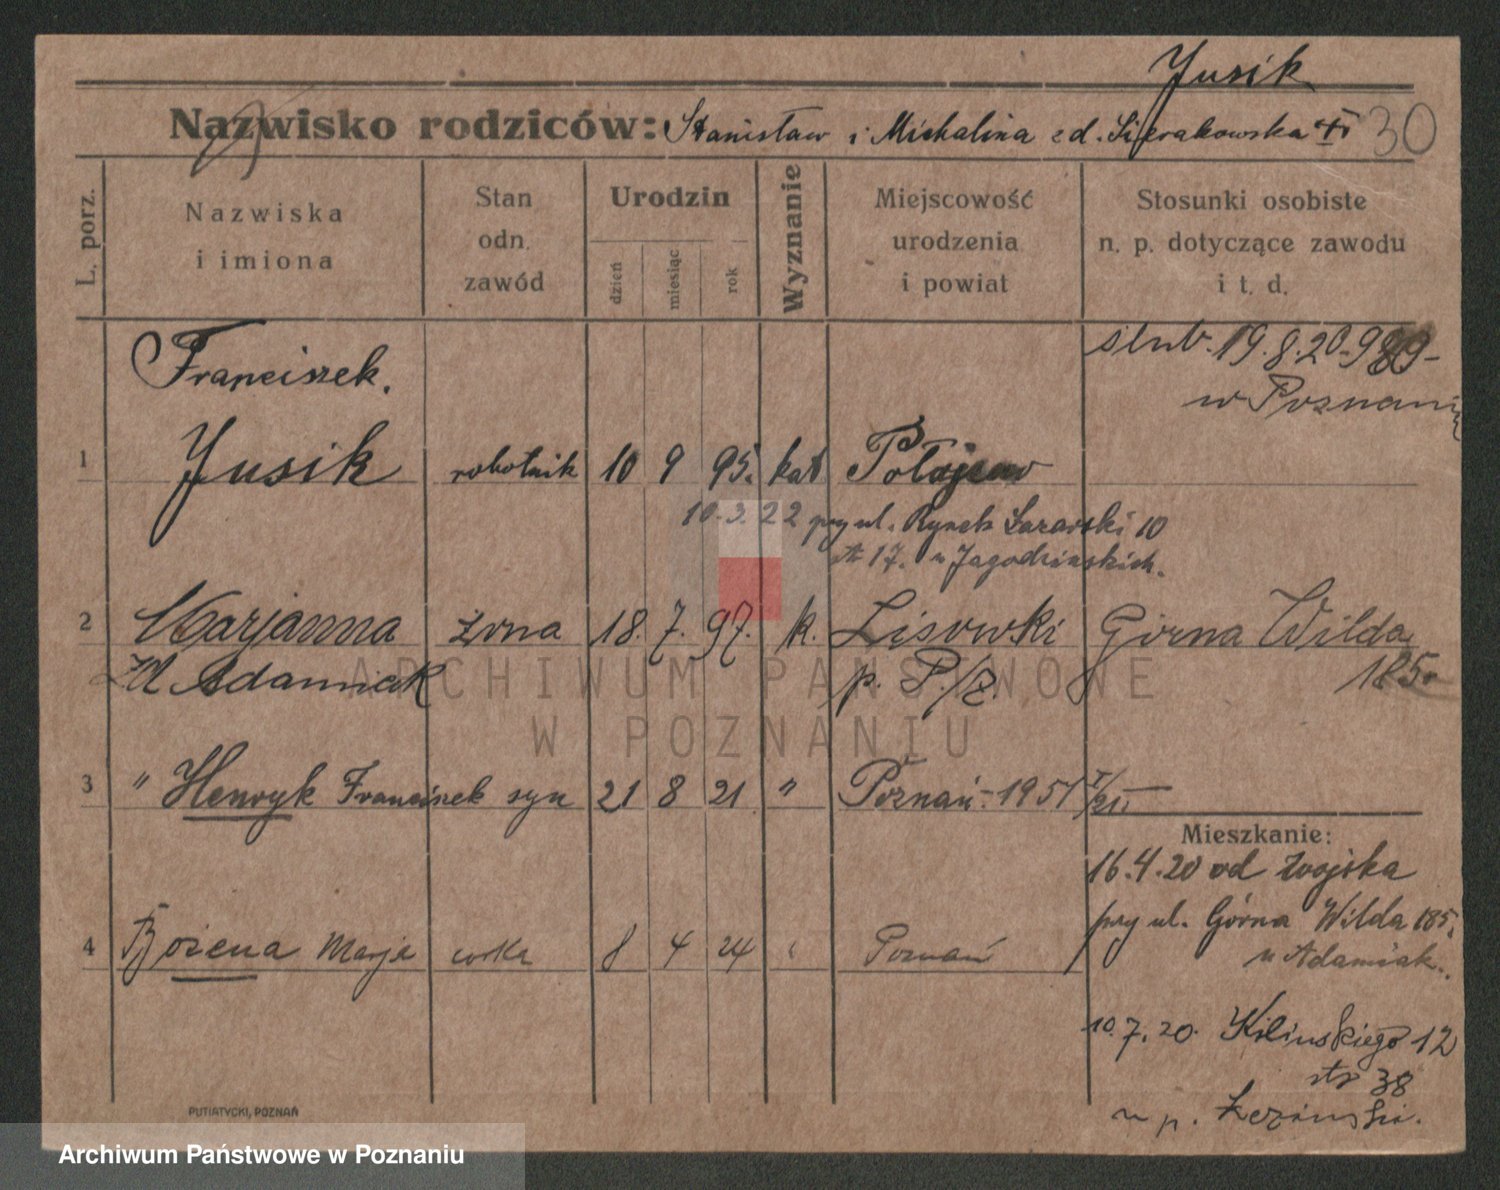 Jusik
Nazwisko rodziców: Stanisław i Michalina z d. Sierakowska 30
L. porz.
Nazwiska
i imiona
Stan
odn.
zawód
Urodzin
dzień
miesiąc
rok
Wyznanie
Miejscowość
urodzenia
i powiat
Stosunki osobiste
n. p. dotyczące zawodu
i t. d.
ślub. 19.8.20
w Poznaniu
Franciszek.
1 Jusik robotnik 10 9 95. kat Połajewo
10.3.22 przy ul. Rynek Łazarski 10
17. u Jagodzińskich.
2 Marjanna żona 18. 7. 97. k. Lisowki Górna Wilda
zd Adamniak p. P./Z. 185.
3 " Henryk Franciszek syn 21 8 21 " Poznań - 1951
Mieszkanie:
16.4.20 od wojska
przy ul. Górna Wilda 185.
u Adamiak.
4 Bożena Marja córka 8 4 24 Poznań
10.7.20. Kilińskiego 12
38
u p.
PUTIATYCKI, POZNAŃ
ARCHIWUM PAŃSTWOWE
W POZNANIU
Archiwum Państwowe w Poznaniu